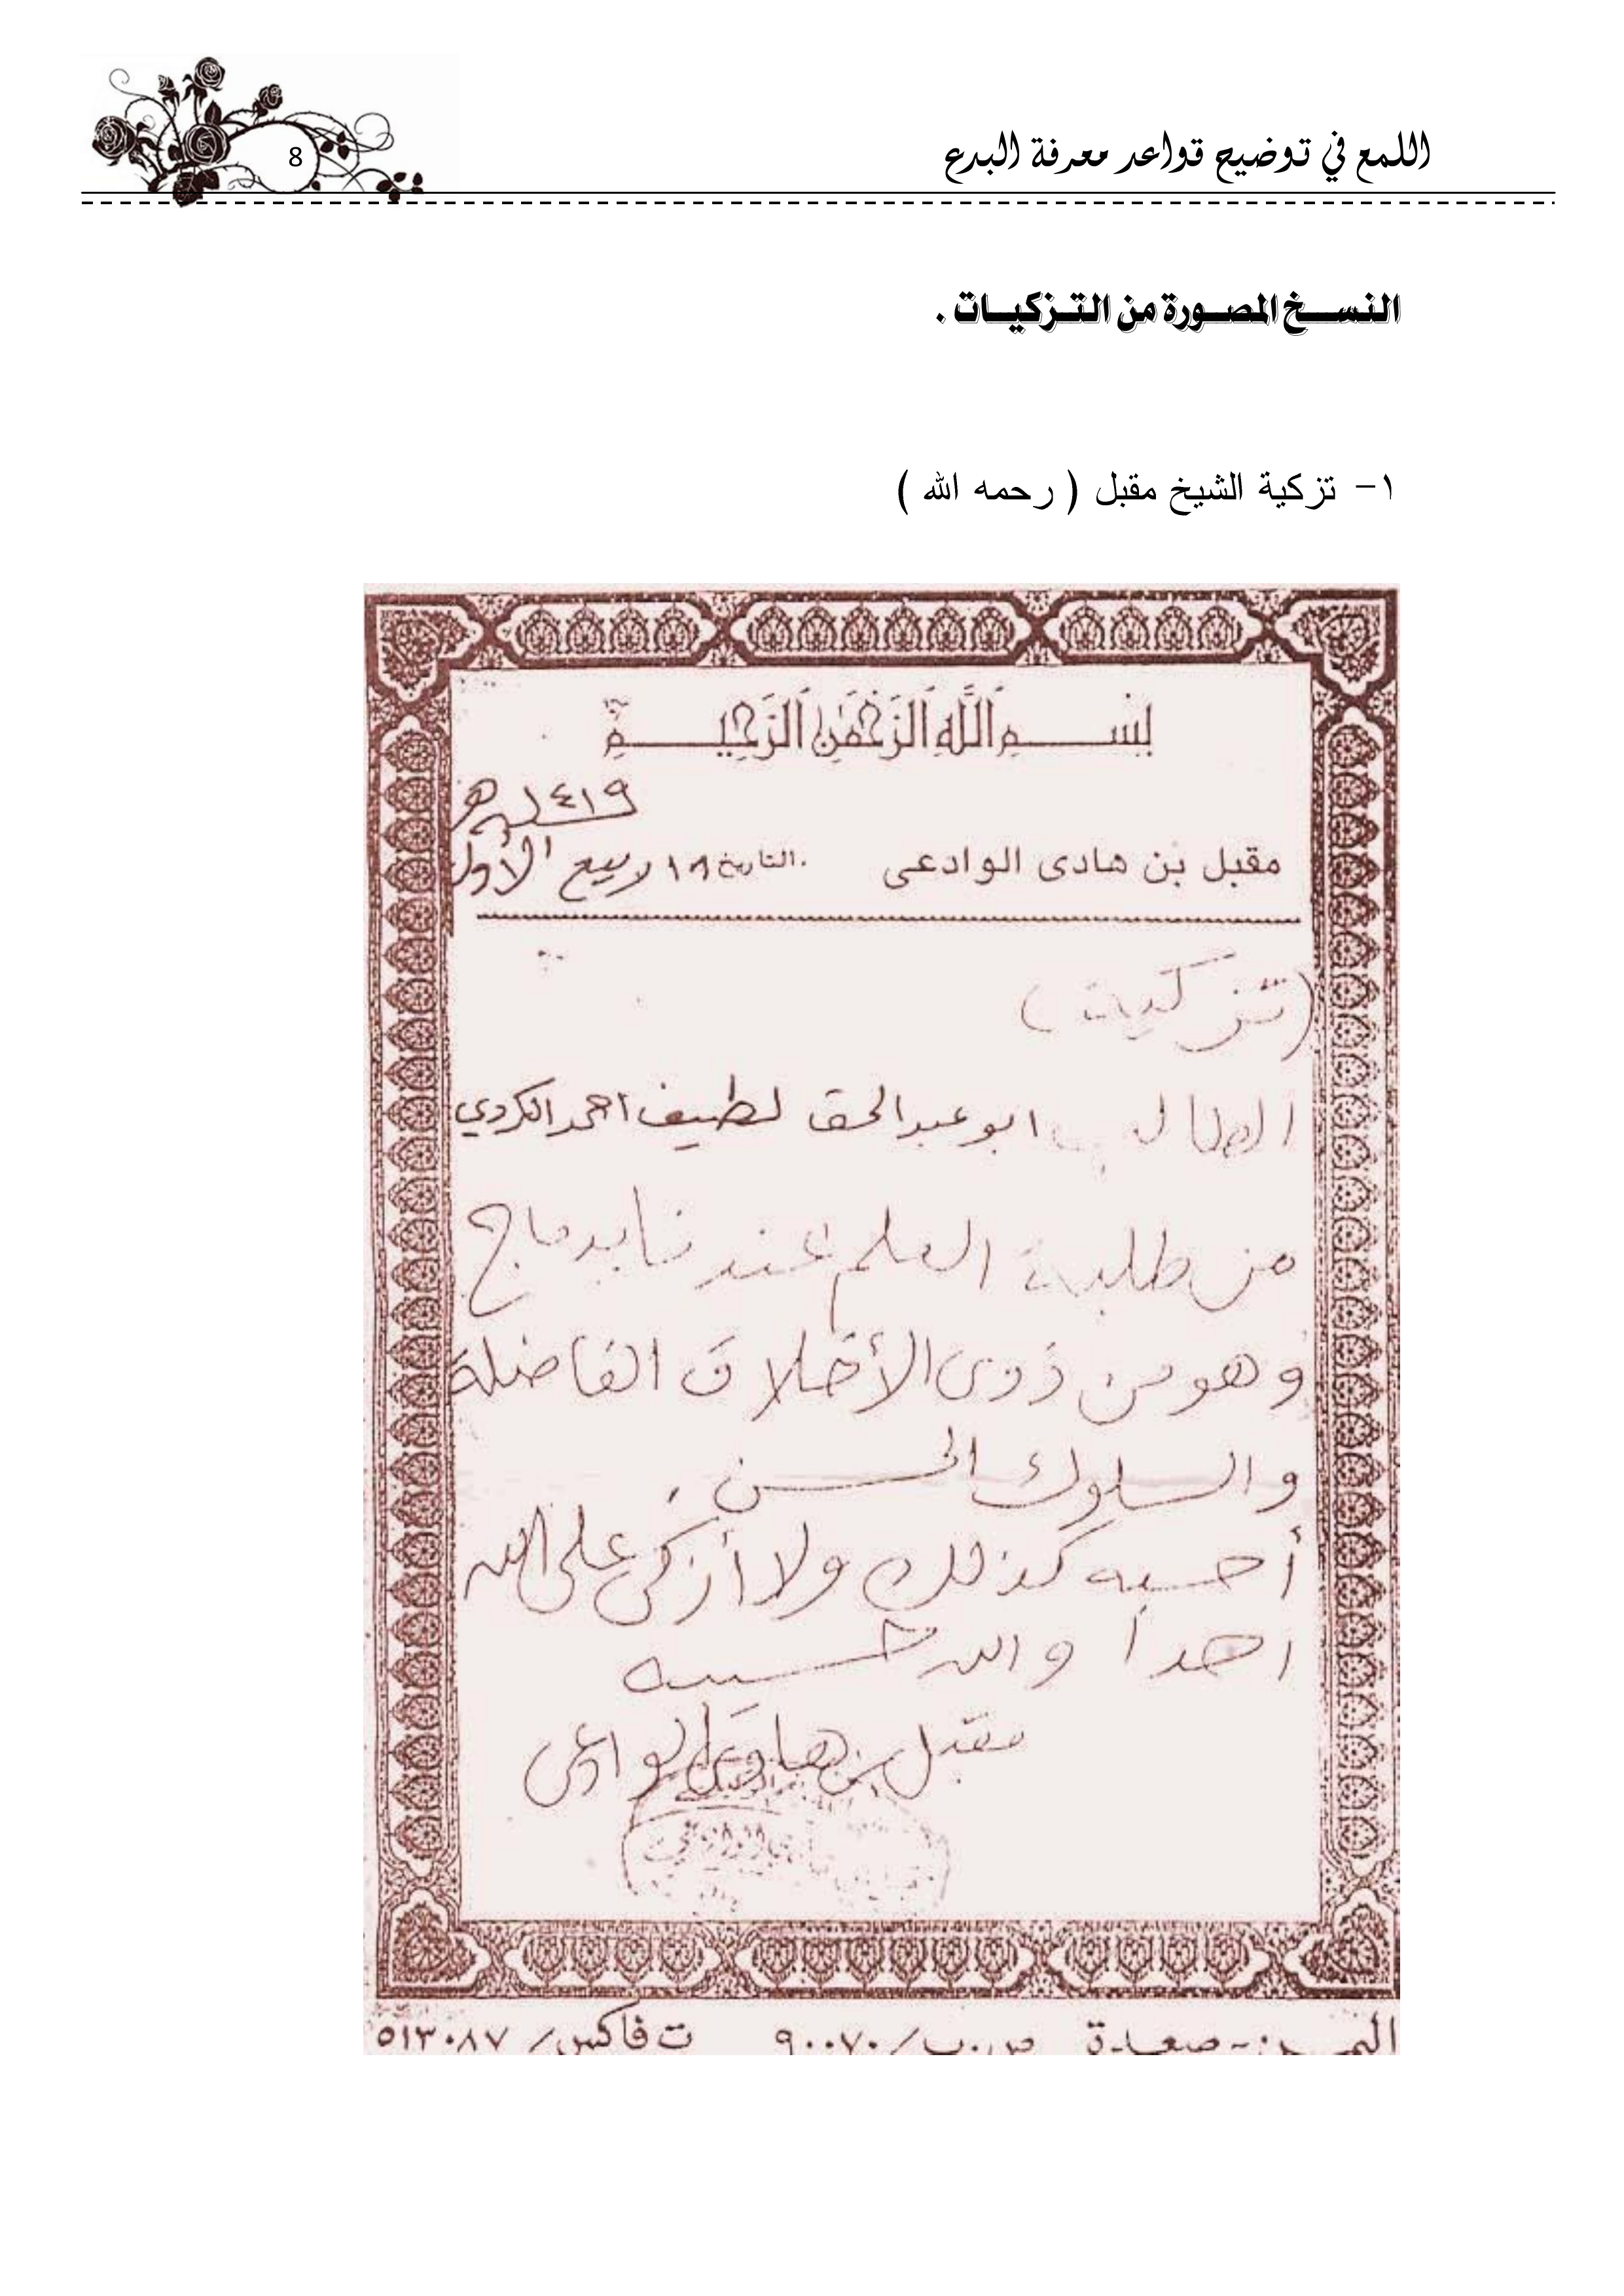 اللمع في توضيح قواعد معرفة البدع
8
النسخ المصورة من التزكيات .
١- تزكية الشيخ مقبل ( رحمه الله )
بِسْمِ اللَّهِ الرَّحْمَٰنِ الرَّحِيمِ
١٤١٩ هـ
مقبل بن هادى الوادعى التاريخ ١٨ ربيع الأول
(تزكيات)
الطالب ابو عبدالحق لطيف احمد الكردي
من طلبة العلم عندنا بدماج
وهو من ذوى الأخلاق الفاضلة
والسلوك الحسن .
أحسبه كذلك ولا أزكى على الله
احداً والله حسيبه
مقبل بن هادى الوادعى
اليمن - صعدة ص.ب/ ٩٠٠٧٠ ت فاكس/ ٥١٣٠٨٧